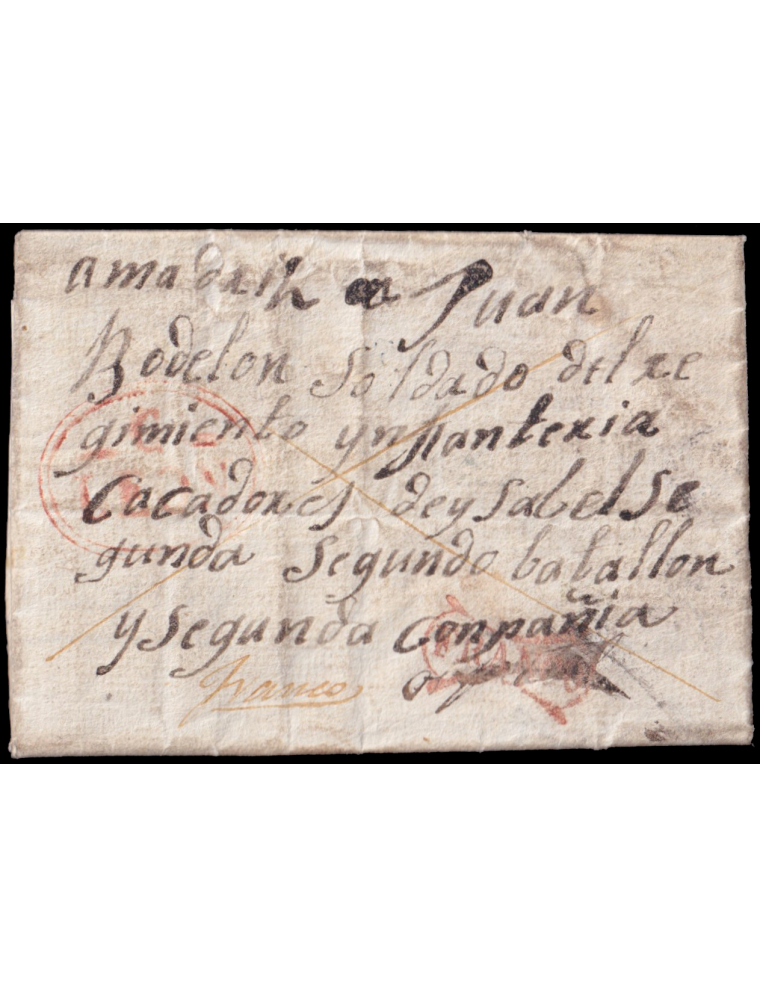 amadrih a Juan
Rodelon Soldado del re
gimiento ynfanteria
Cacadores de ysabel se
gunda segundo batallon
y segunda conpañia
franco